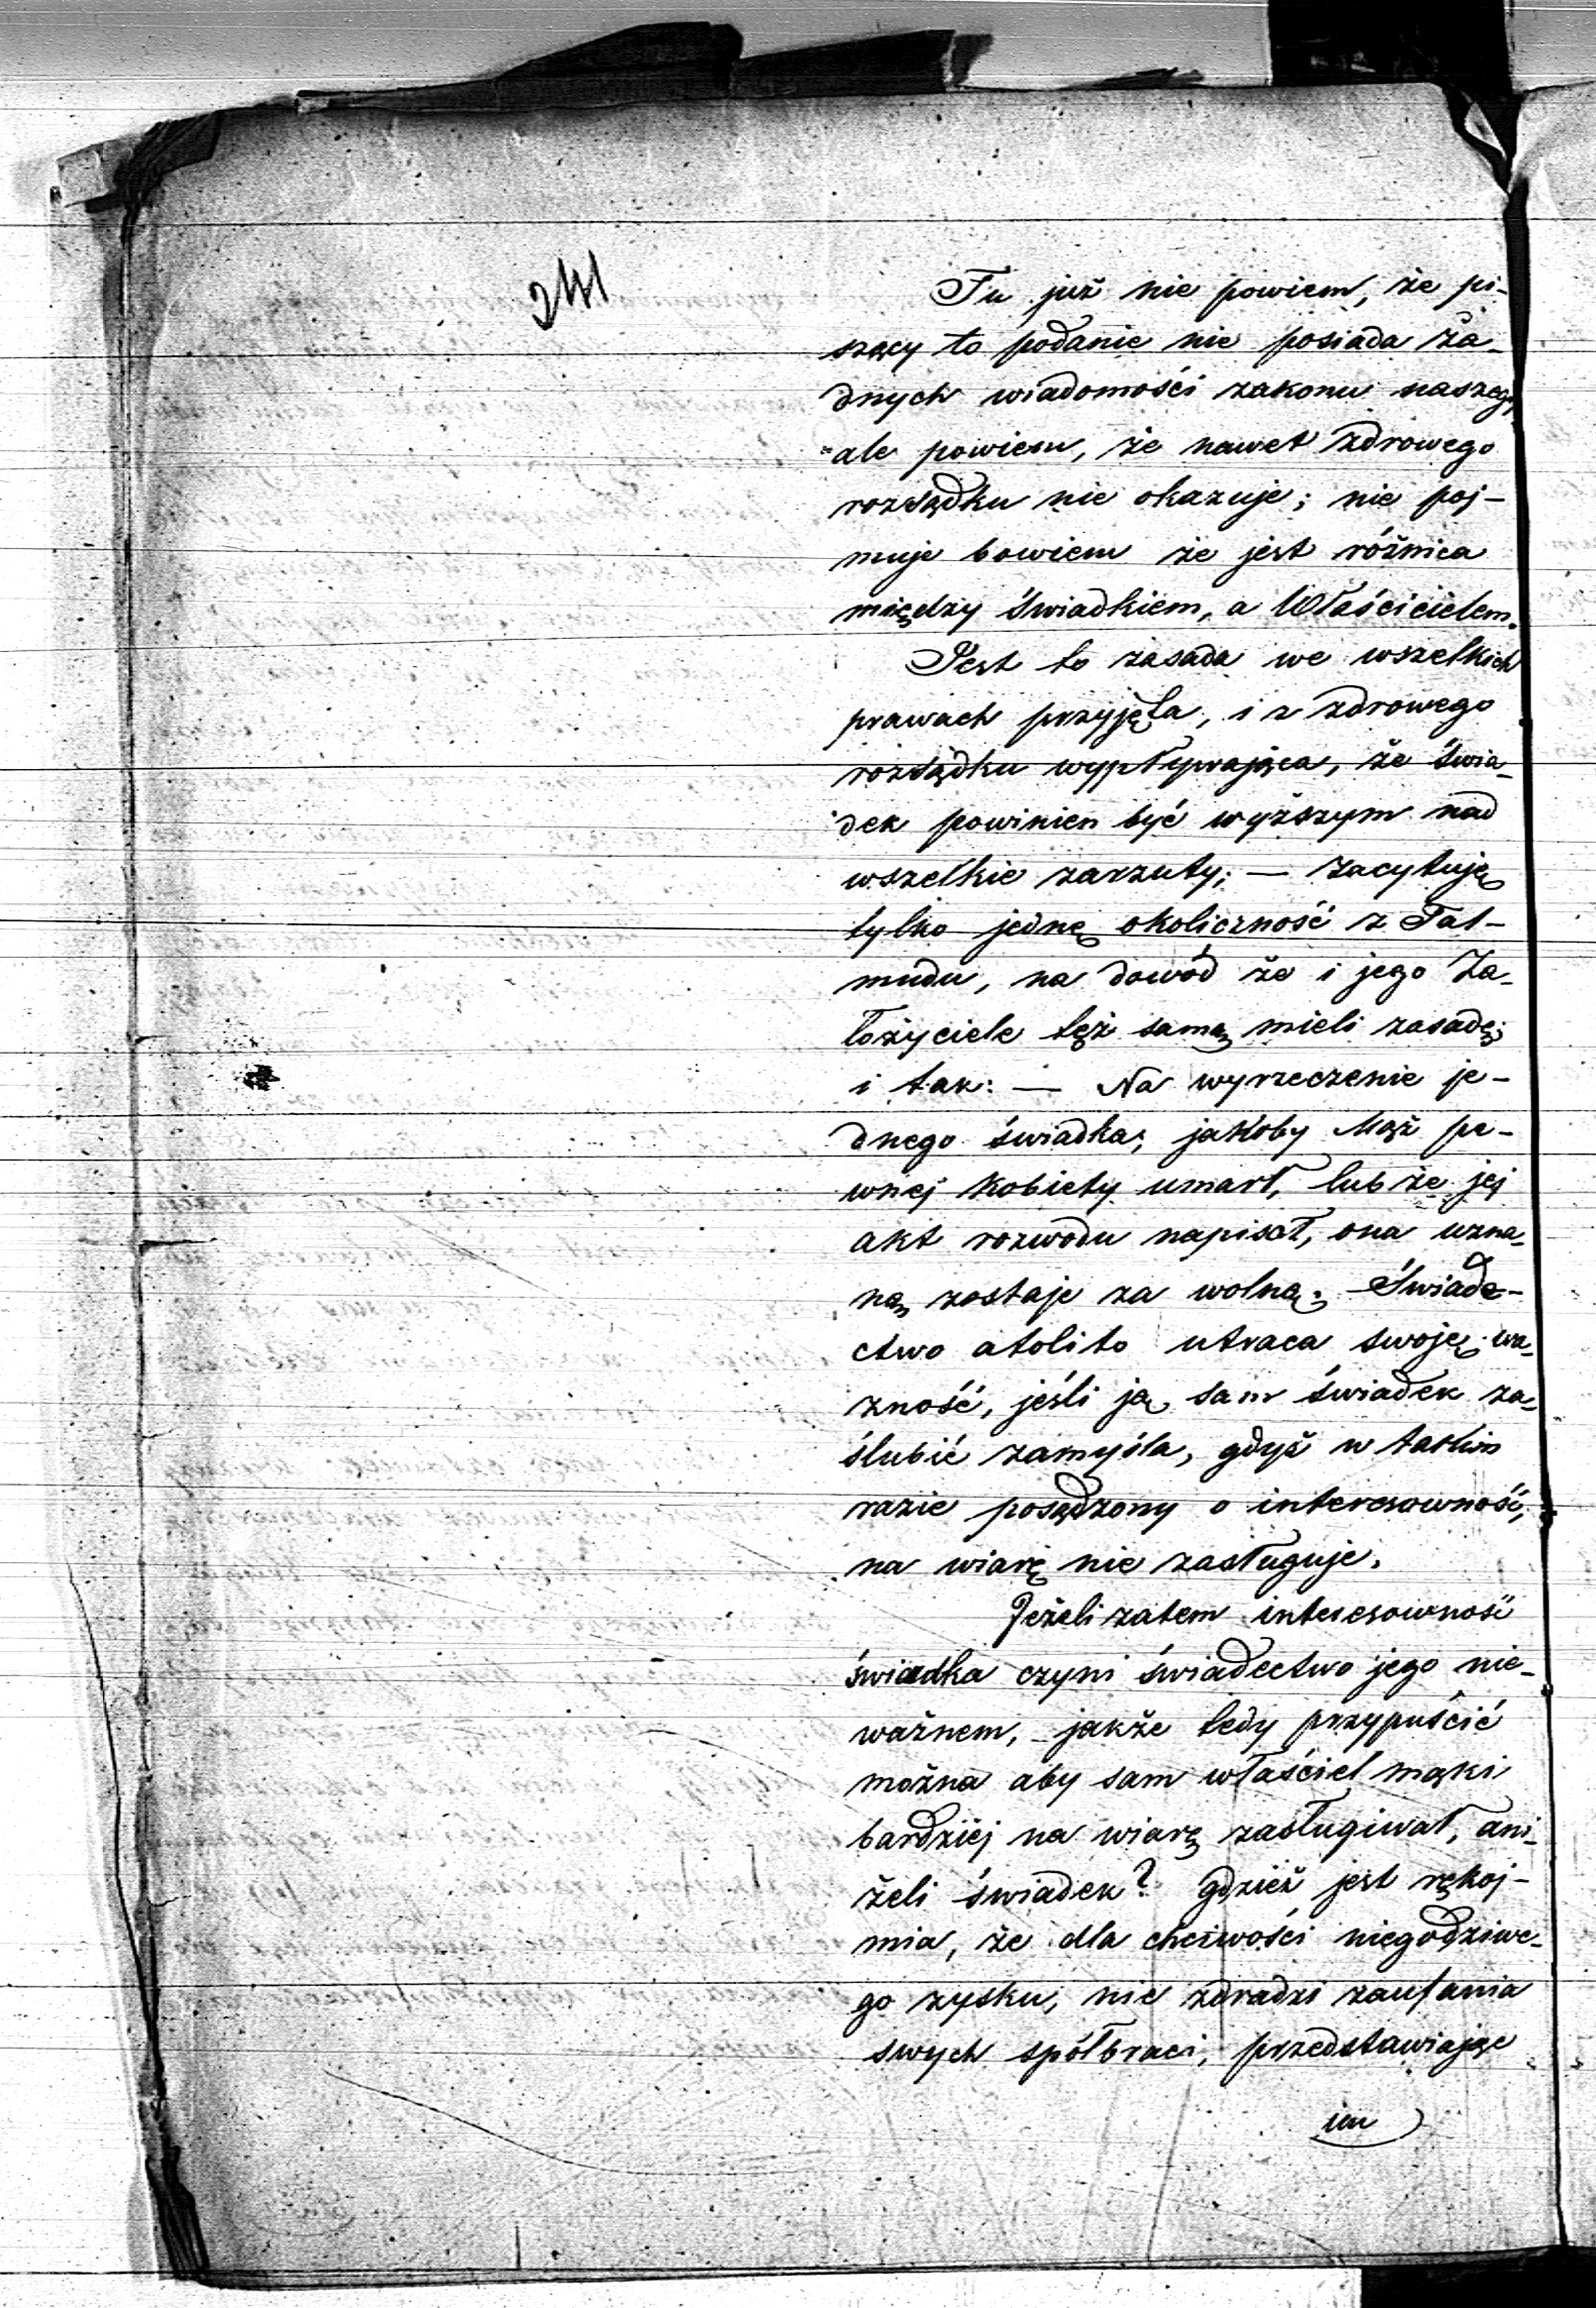 241
Tu już nie powiem, że pi-
szący to podanie nie posiada ża-
dnych wiadomości zakonu naszego
ale powiem, że nawet zdrowego
rozsądku nie okazuje; nie poj-
muje bowiem że jest różnica
między świadkiem, a Właścicielem.
Jest to zasada we wszelkich
prawach przyjęta, i z zdrowego
rozsądku wypływająca, że świa-
dek powinien być wyższym nad
wszelkie zarzuty; — zacytuję
tylko jednę okoliczność z Tal-
mudu, na dowód że i jego Za-
łożyciele też samą mieli zasadę;
i tak: — Na wyrzeczenie je-
dnego świadka; jakoby Mąż pe-
wnej kobiety umarł, lub że jej
akt rozwodu napisał, ona uzna-
ną zostaje za wolną; Świade-
ctwo atolito utraca swoję wa-
zność, jeśli ją sam świadek za-
ślubić zamyśla, gdyż w takim
razie posądzony o interesowność,
na wiarę nie zasługuje.
Jeżeli zatem interesowność
świadka czyni świadectwo jego nie-
ważnem, jakże tedy przypuścić
można aby sam właściel mąki
bardziej na wiarę zasługiwał, ani-
żeli świadek? gdzież jest rękoj-
mia, że dla chciwości niegodziwe-
go zysku, nie zdradzi zaufania
swych spółbraci, przedstawiając
im